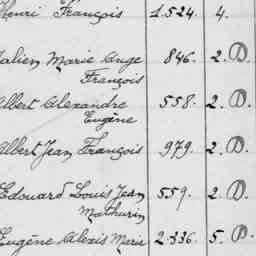 Henri François 1.524. 4.
Julien Marie Ange 846. 2. D.
François
Albert Alexandre 558. 2. D.
Eugène
Albert Jean François 979. 2. D.
Edouard Louis Jean 559. 2. D.
Mathurin
Eugène Alexis Marie 2.336. 5. D.